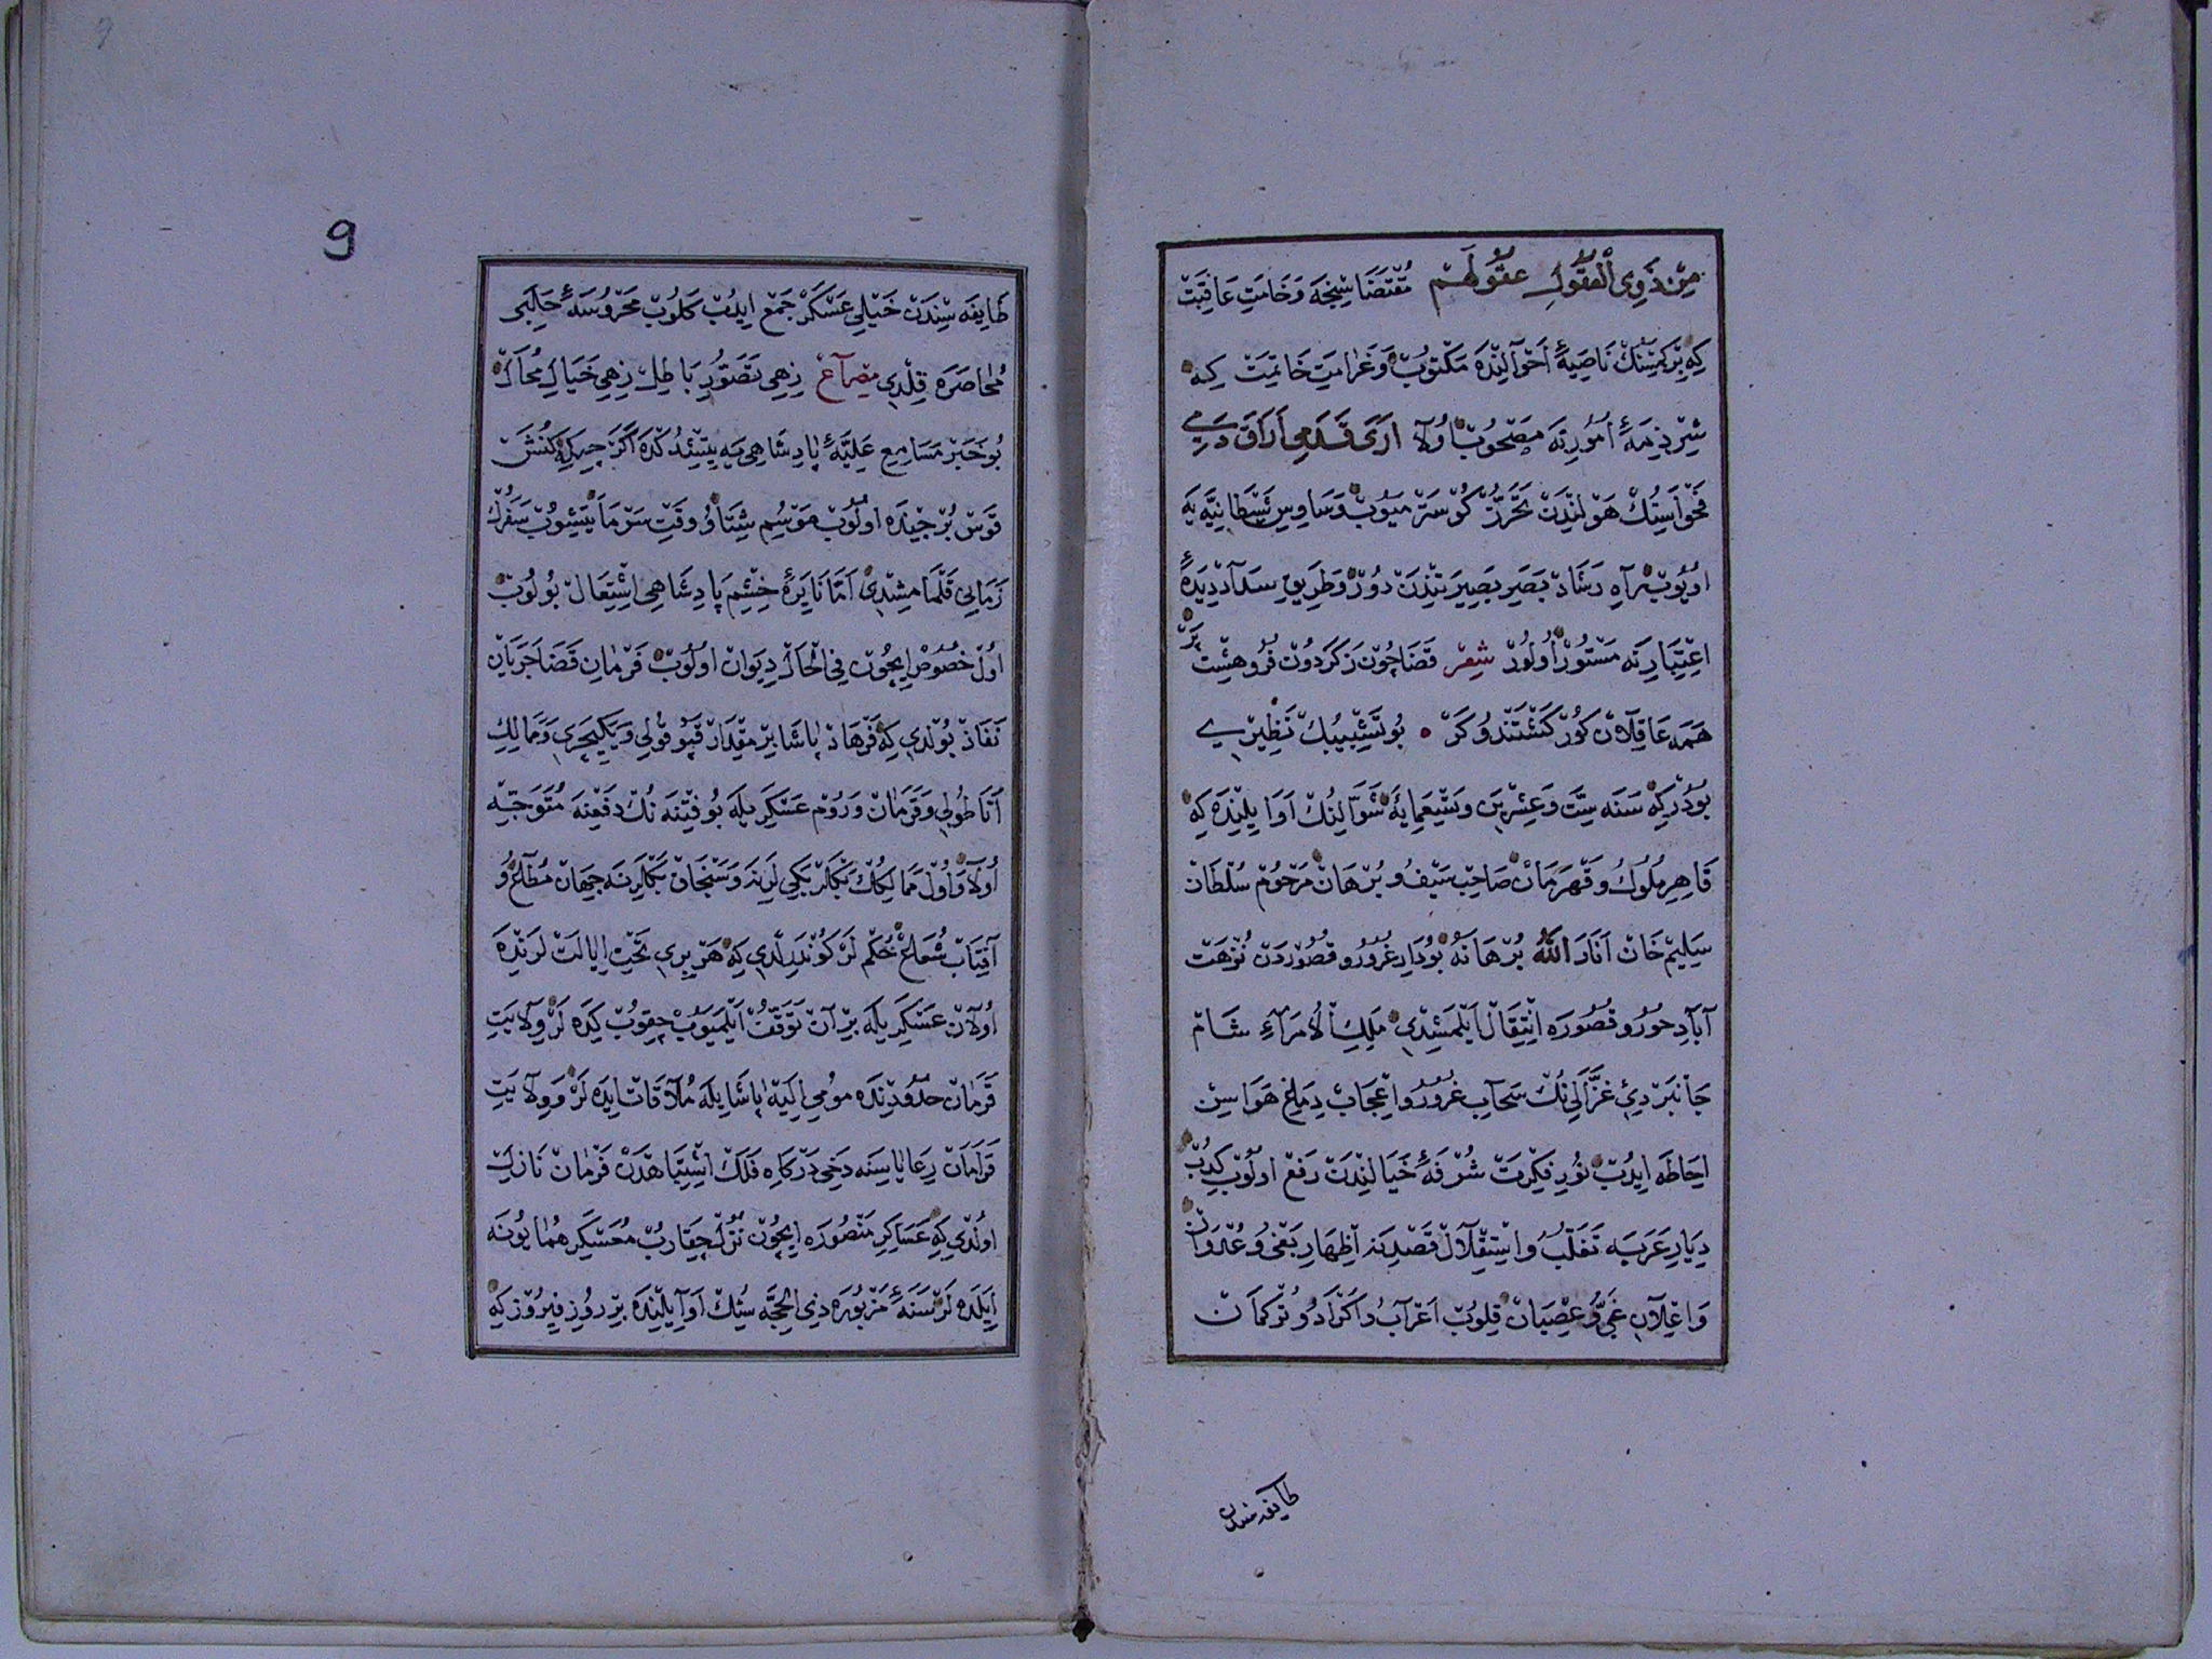 مِنْ ذَوِى الْعُقُولِ عُقُولَهُمْ مُقْتَضَاسِنْجَه وَخَامَتِ عَاقِبَتْ
كِه بِرْكِمْسَنِكْ نَاصِيَۀِ اَحْوَالِنْدَه مَكْتُوبْ وَغَرَامَتِ خَاتِمَتْ كِه
اُمُورِنَه مَصْحُوبْ اُولَا اَرَى قَدَمِى اَرَاقَ دَمِى
فَحْوَاسِنُكْ هَوْلِنْدَنْ تَحَرُّزْ كُوسْتَرْمَيُوبْ وَسَاوِسِ شَيْطَانِيَّه يَه
اُويُوبْ رَاهِ رَشَادْ بَصَرِ بَصِيرَتِنْدَنْ دُورْ وَطَرِيقِ سَدَادْ دِيدَۀِ
اِعْتِبَارِنَه مَسْتُورْ اُولُورْ شِعِرْ قَضَا چُونْ زَكَرْدُونْ فُرُو هِشْتْ پَرْ
هَمَه عَاقِلَانْ كُورْ كَشْتَنْدُ وكَرْ بُو تَشْبِيبُكْ نَظِيرِى
بُودُرْكِه سَنَه سِتَّ وَعِشْرِينَ وَتِسْعَمِايَه شَوَّالِنُكْ اَوَايِلِنْدَه كِه
قَاهِرِ مُلُوكْ وقَهْرَمَانْ صَاحِبْ سَيْفُ وبُرْهَانْ مَرْحُومْ سُلْطَانْ
سَلِيمْ خَانْ اَنَارَ اللّٰهُ بُرْهَانَهُ بُودَارِ غُرُورو قُصُورْدَنْ نُزْهَتْ
آبَادِ حُورُو قُصُورَه اِنْتِقَالْ اَيْلَمِشْدِى مَلِكُ الْاُمَرَاءِ شَامْ
جَانْبَرْدِئ غَزَّالِى نُكْ سَحَابِ غُرُورُ واِعْجَابْ دِمَاغْ هَوَاسِنْ
اِحَاطَه ايدُبْ نُورِ فِكْرَتْ شُرْفَۀِ خَيَالِنْدَنْ رَفْعْ اُولُوبْ كِدُبْ
دِيَارِ عَرَبَه تَغَلُّبُ واِسْتِقْلَالْ قَصْدِنَه اِظْهَارِ بَغْىُ وَعُدْوَانْ
وَاِعْلَانِ غَىُّ وعِصْيَانْ قِلُوبْ اَعْرَابُ واَكْرَادُ وتُرْكمَانْ
طايفه سندن
9
طَايِفَه سِنْدَنْ خَيْلِى عَسْكَرْ جَمْعْ ايدُبْ كَلُوبْ مَحْرُوسَۀِ حَلَبِى
مُحَاصَرَه قِلْدِى مِصْرَاعْ زِهِى تَصَوُّرِ بَاطِلْ زِهِى خَيَالِ مُحَالْ
بُو خَبَرْ مَسَامِعِ عَلِيَّۀِ پَادِشَاهِى يَه يِتِشْدُكْدَه اَكَرْچِه كِه كُنَشْ
قَوْسْ بُرْجِنْدَه اُولُوبْ مَوْسِمِ شِتَا وُ وَقْتِ سَرْمَا يِتِشُوبْ سَفَرُكْ
زَمَانِى قَلْمَامِشْدِى اَمَّا نَايِرَۀِ خِشْمِ پَادِشَاهِى اِشْتِعَالْ بُولُوبْ
اُولْ خُصُوصْ ايچُونْ فِى الْحَالْ دِيوَانْ اُولُوبْ فَرْمَانِ قَضَا جَرَيَانْ
نَفَاذْ بُولْدِى كِه فَرْهَادْ پَاشَا بِرْ مِقْدَارْ قَپُو قُولِى وَيَكِيچَرِى وَمَمَالِكِ
اَنَاطُولِى وَقَرَمَانْ وَرُومْ عَسْكَرِيلَه بُو فِتْنَه نُكْ دَفْعِنَه مُتَوَجِّه
اُولَا وَاُولْ مَمَالِكُكْ بَكْلَرْبَكِى لَرِنَه وَسَنْجَاقْ بَكْلَرِنَه جِهَانْ مُطَاعْ وُ
آفِتَابْ شُعَاعْ حُكْمْ لَرْ كُونْدَرِلْدِى كِه هَرْ بِرِى تَحْتِ اِيَالَتْ لَرِنْدَه
اُولَانْ عَسْكَرِيلَه بِرْ آنْ تَوَقُّفْ اَيْلَمَيُوبْ چِقُوبْ كِيدَه لَرْ وِلَايَتِ
قَرَمَانْ حُدُودِنْدَه مُومِى اِلَيْه پَاشَايِلَه مُلَاقَاتْ ايدَه لَرْ وَوِلَايَتِ
قَرَامَانْ رِعَايَاسِنَه دَخِى دَرْكَاهِ فَلَكْ اِشْتِبَاهْدَنْ فَرْمَانْ نَازِلْ
اُولْدِى كِه عَسَاكِرِ مَنْصُورَه ايچُونْ نُزُلْ چِقَارُبْ مُعَسْكَرِ هُمَايُونَه
اِيلَدَه لَرْ سَنَۀِ مَزْبُورَه ذِى الْحِجَّه سِنُكْ اَوَايِلِنْدَه بِرْ رُوزِ فِيرُوزْ كِه